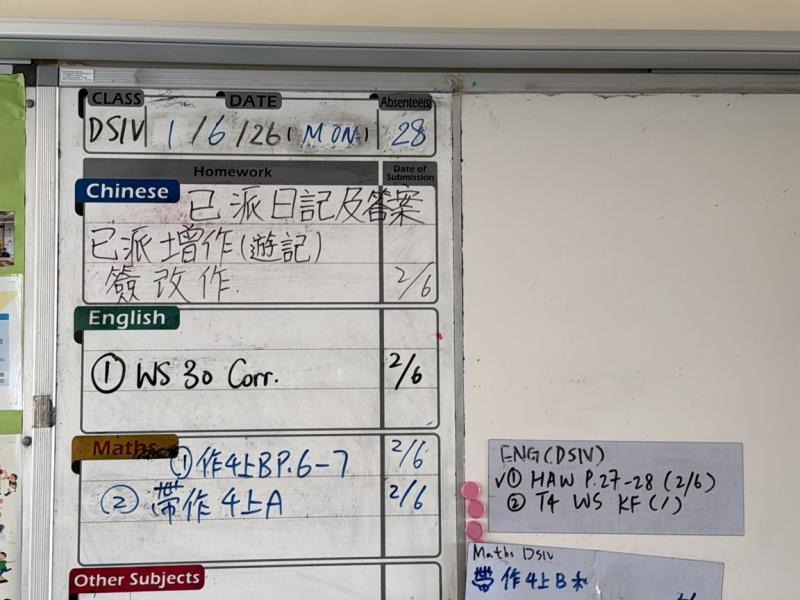 CLASS DATE Absentee(s)
DSIV 1/6/26 (MON) 28
Homework Date of Submission
Chinese 已派日記及答案
已派增作(遊記)
簽改作. 2/6
English
① WS 30 Corr. 2/6
Maths ①作4上BP.6-7 2/6
② 帶作4上A 2/6
Other Subjects
ENG(DSIV)
✓① HAW P.27-28 (2/6)
② T4 WS KF (/)
Maths DSIV
帶作4上B